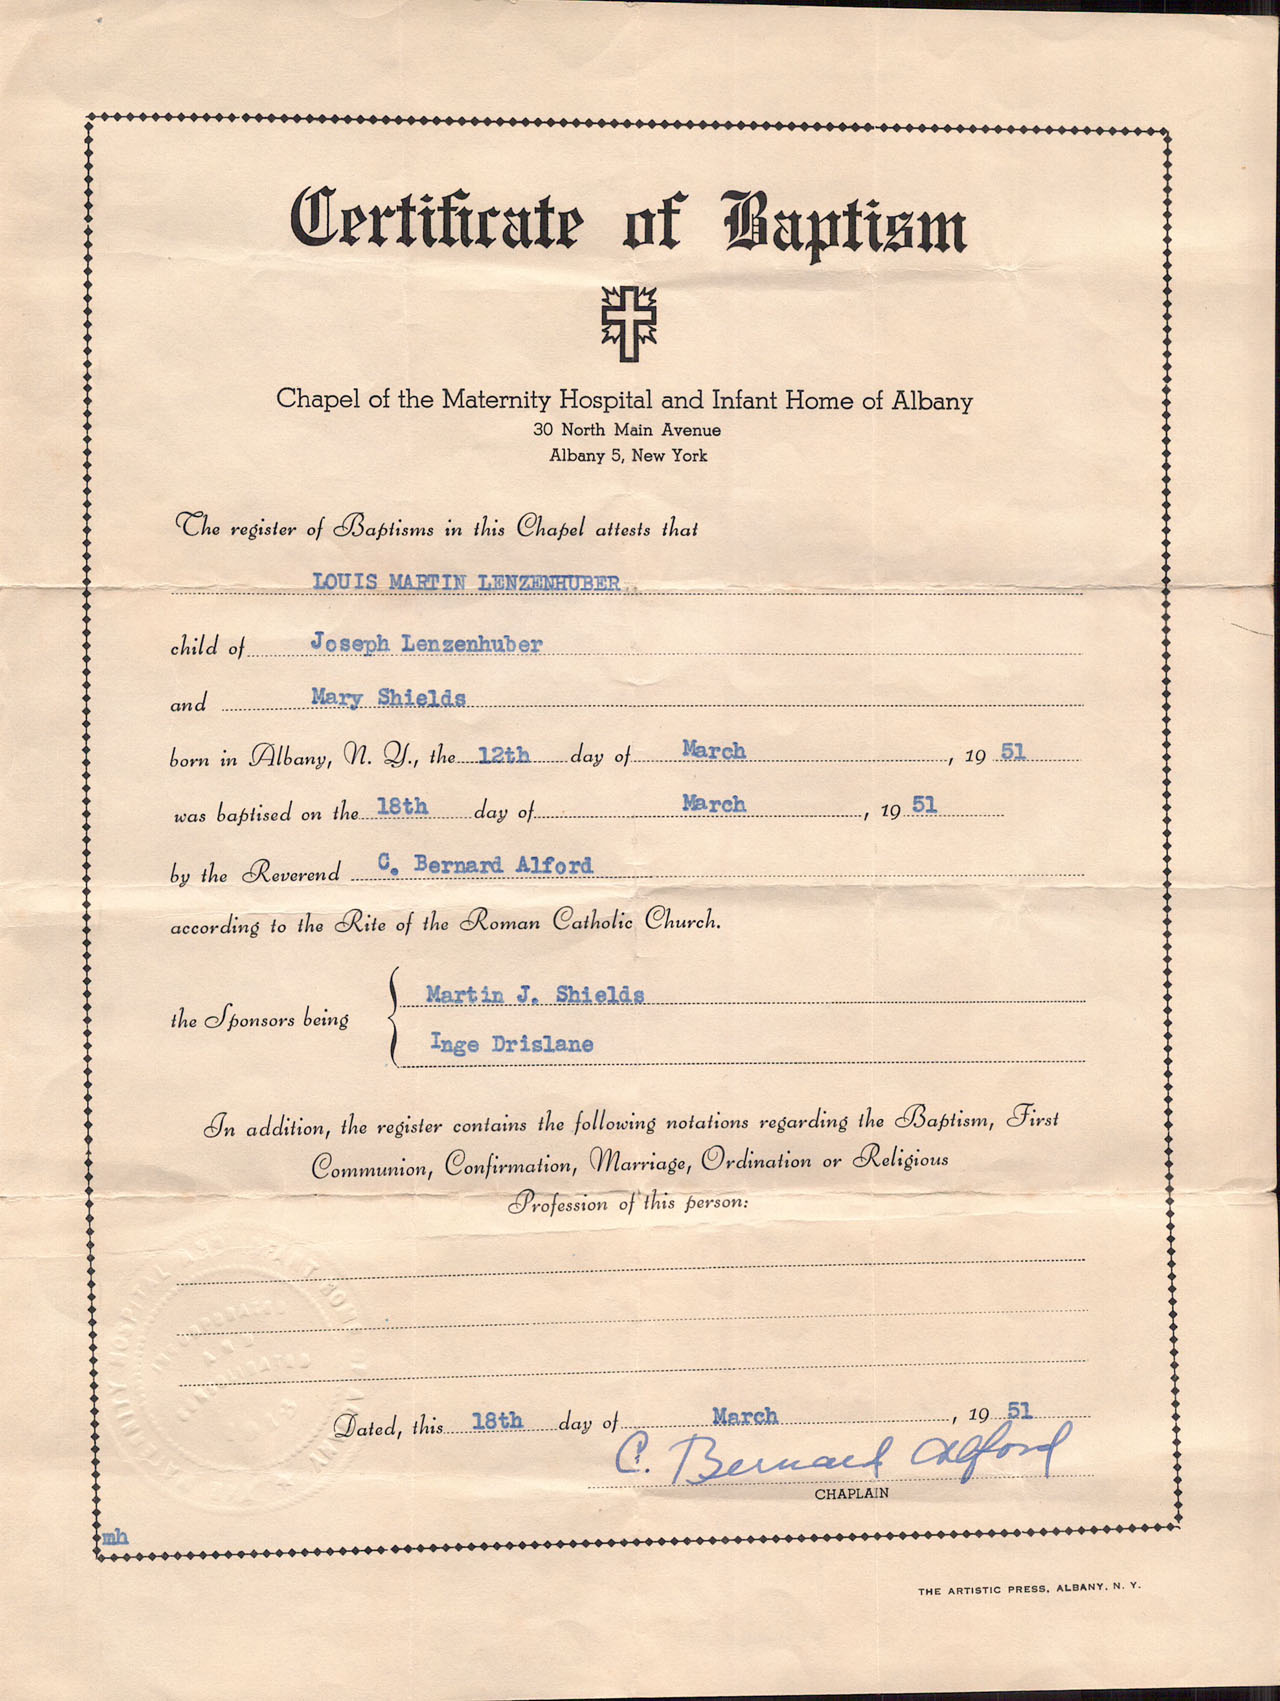 Certificate of Baptism
Chapel of the Maternity Hospital and Infant Home of Albany
30 North Main Avenue
Albany 5, New York
The register of Baptisms in this Chapel attests that
LOUIS MARTIN LENZENHUBER
child of Joseph Lenzenhuber
and Mary Shields
born in Albany, N. Y., the 12th day of March, 19 51
was baptised on the 18th day of March, 19 51
by the Reverend C. Bernard Alford
according to the Rite of the Roman Catholic Church.
the Sponsors being
Martin J. Shields
Inge Drislane
In addition, the register contains the following notations regarding the Baptism, First
Communion, Confirmation, Marriage, Ordination or Religious
Profession of this person:
Dated, this 18th day of March, 19 51
C. Bernard Alford
CHAPLAIN
mh
THE ARTISTIC PRESS, ALBANY, N. Y.